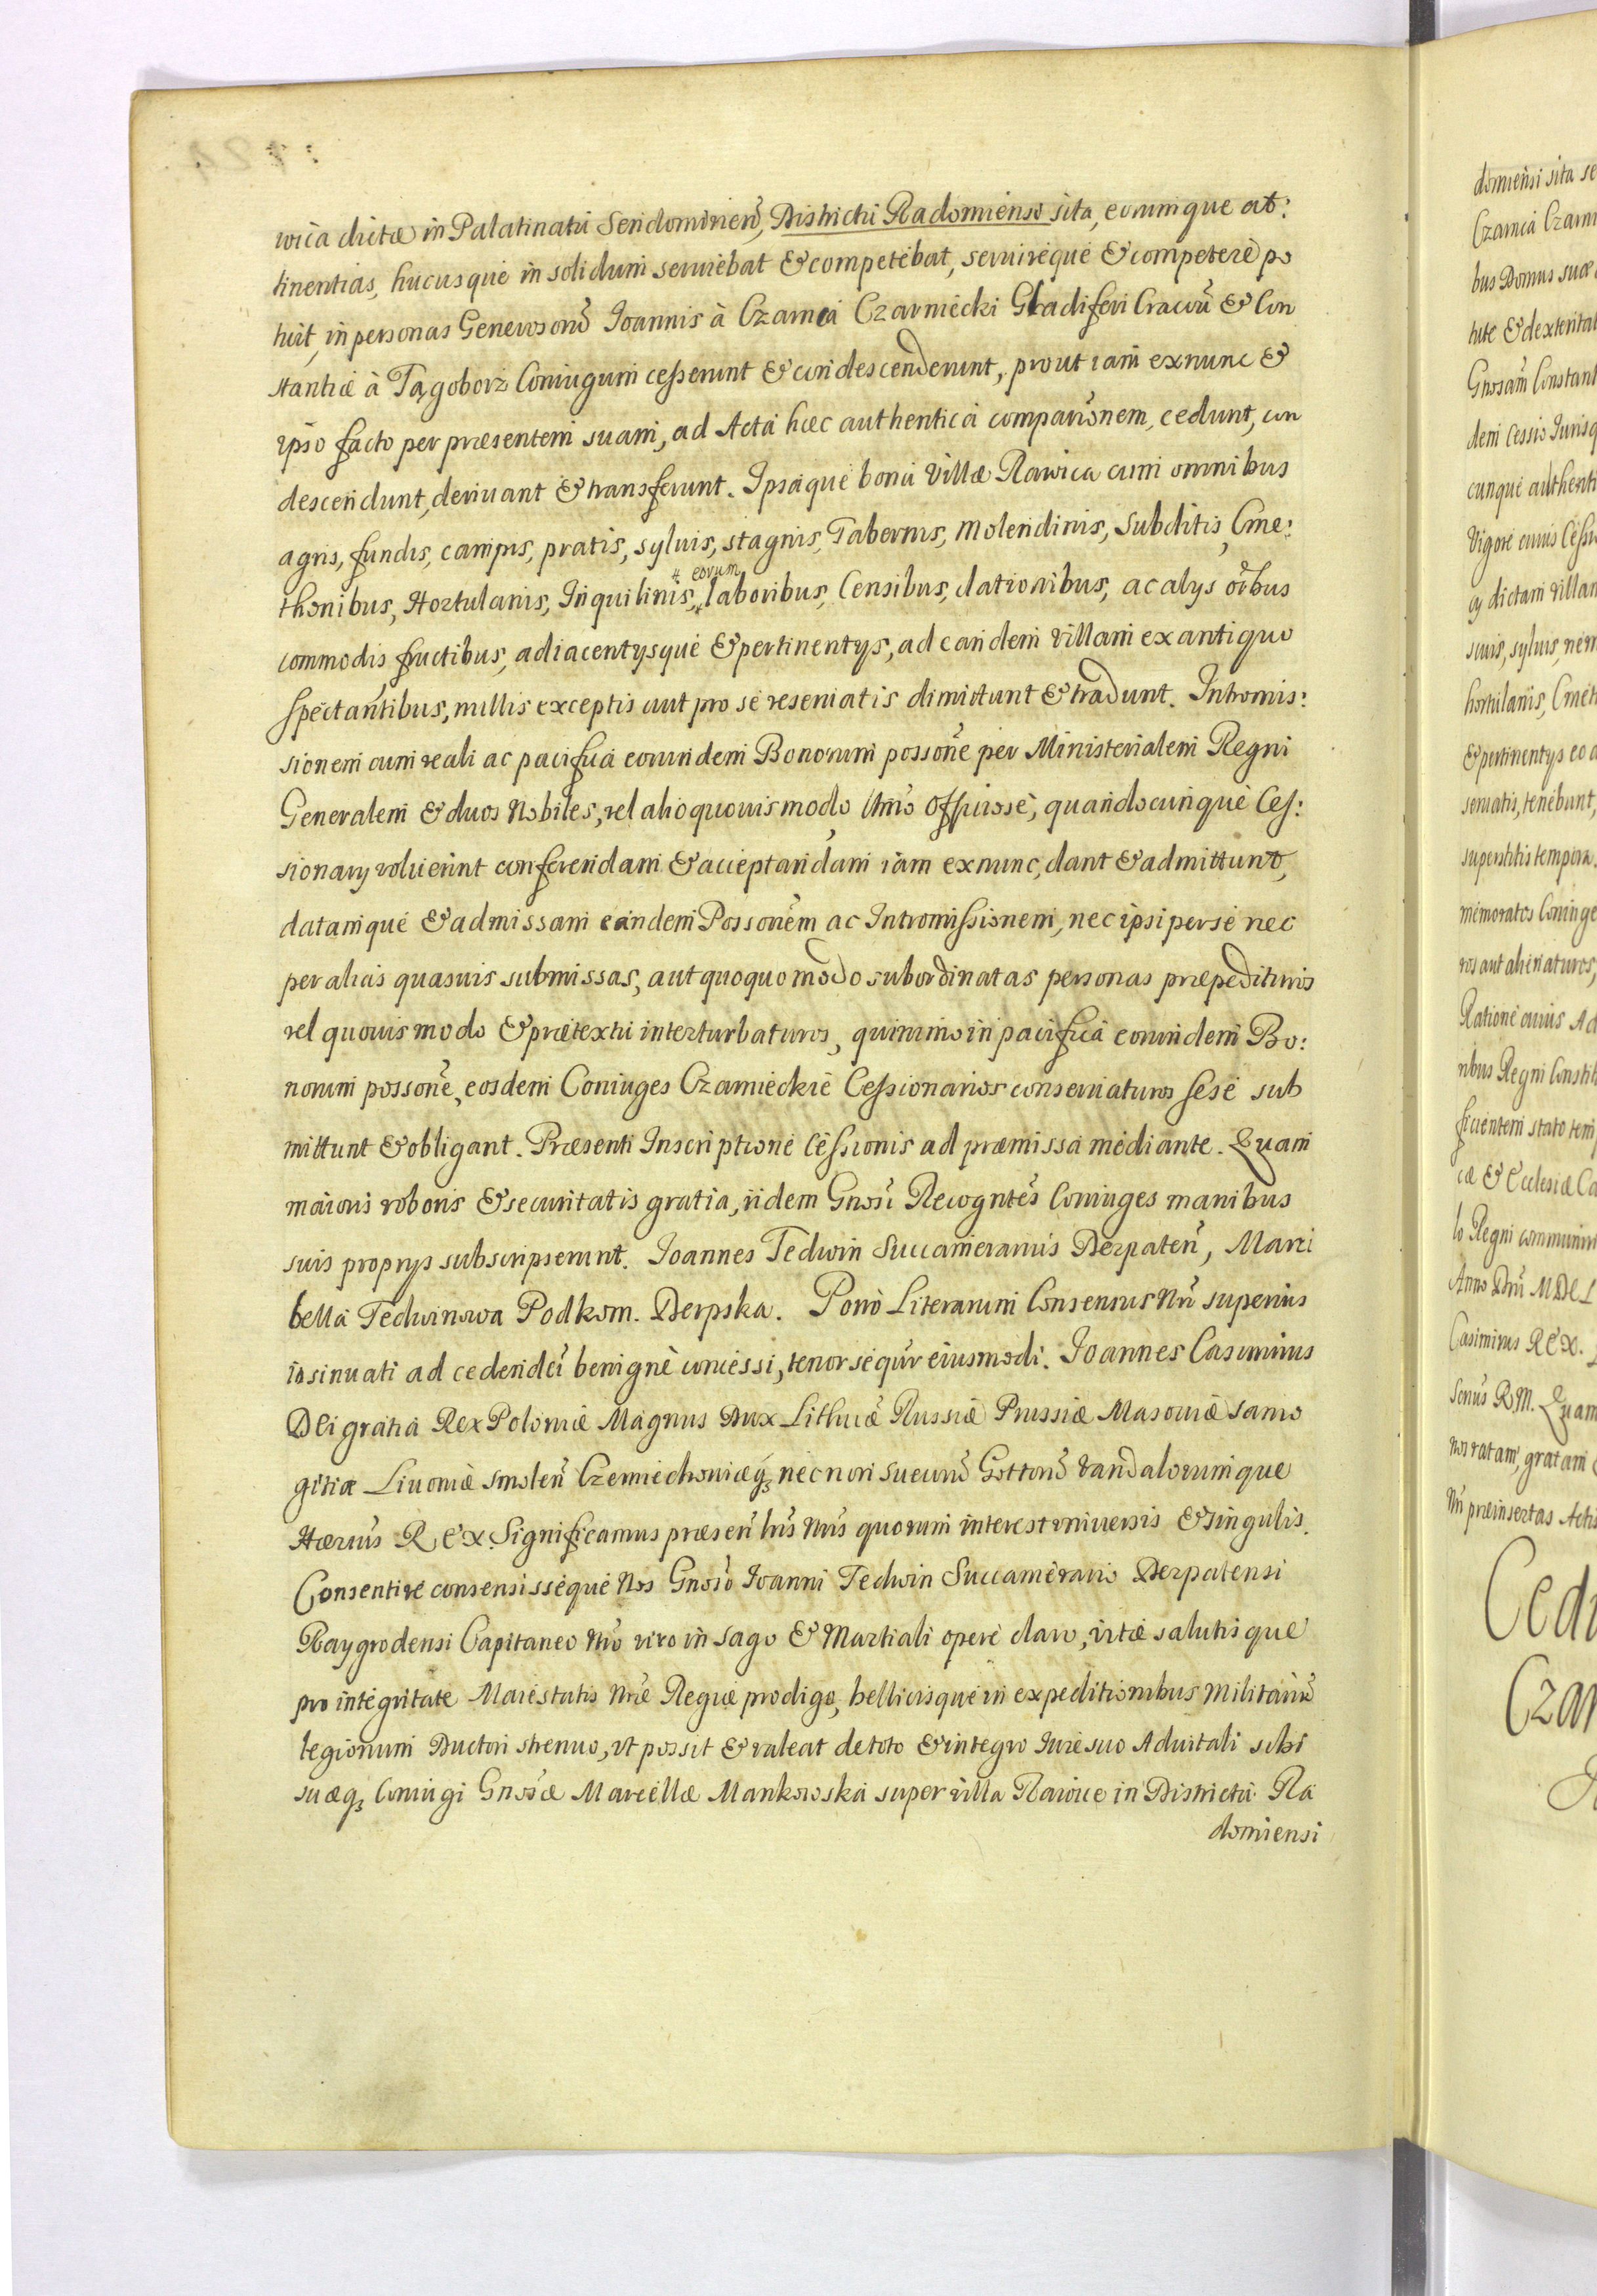 wica dictæ in Palatinatu Sendomirieñ, Districtu Radomiensi sita, eorumque at:
tinentias, hucusque in solidum seruiebat & competebat, seruireque & competere po
tuit, in personas Generosorũ Joannis à Czarnca Czarniecki Gladiferi Cracoũ & Con
stantiæ à Tągoborz Coniugum cesserunt & condescenderunt, prout iam exnunc &
ipso facto per præsentem suam, ad Acta hæc authentica comparõnem, cedunt, con
descendunt, deriuant & transferunt. Ipsaque bona Villæ Rawica cum omnibus
agris, fundis, campis, pratis, syluis, stagnis, Tabernis, Molendinis, Subditis, Cme:
thonibus, Hortulanis, Inquilinis, eorum laboribus, Censibus, dationibus, ac alys oĩbus
commodis fructibus, adiacentysque & pertinentys, ad eandem villam ex antiquo
spectantibus, nullis exceptis aut pro se reseruatis dimittunt & tradunt. Intromis:
sionem cum reali ac pacifica eorundem Bonorum possõne per Ministerialem Regni
Generalem & duos Nobiles, vel alio quouis modo officiose, quandocunque Ces:
sionary voluerint conferendam & acceptandam iam exnunc, dant & admittunt,
datamque & admissam eandem Possõnem ac Intromissionem, nec ipsi per se nec
per alias quasuis submissas, aut quoquo modo subordinatas personas præpedituros
vel quouis modo & prætextu interturbaturos, quinimo in pacifica eorundem Bo:
norum possõne, eosdem Coniuges Czarnieckie Cessionarios conseruaturos sese sub
mittunt & obligant. Præsenti Inscriptione Cessionis ad præmissa mediante. Quam
maioris roboris & securitatis gratia, iidem Gnosi Recogntes Coniuges manibus
suis proprys subscripserunt. Joannes Tedwin Succamerarius Derpateñ, Marci
bella Tedwinowa Podkom. Derpska. Porro Literarum Consensus Nri superius
insinuati ad cedendũ benigne concessi, tenor sequr eiusmodi. Joannes Casimirus
Dei gratia Rex Poloniæ Magnus Dux Lithuæ Russiæ Prussiæ Masouiæ Samo
gitiæ Liuoniæ Smoleñ Czerniechouiæq3 necnon Sueorũ Gottorũ Vandalorumque
Hærius REX. Significamus præseñ lris Nris quorum interest vniuersis & singulis.
Consentire consensisseque Nos Gnoso Joanni Tedwin Succamerario Derpatensi
Raygrodensi Capitaneo Nro viro in Sago & Martiali opere claro, vitæ salutisque
pro integritate Maiestatis Nræ Regiæ prodigo, bellicisque in expeditionibus Militariũ
legionum Ductori strenuo, vt possit & valeat de toto & integro Iure suo Aduitali sibi
suæq3 Coniugi Gnosæ Marcellæ Mankowska super villa Rawice in Districtu Ra
domiensi